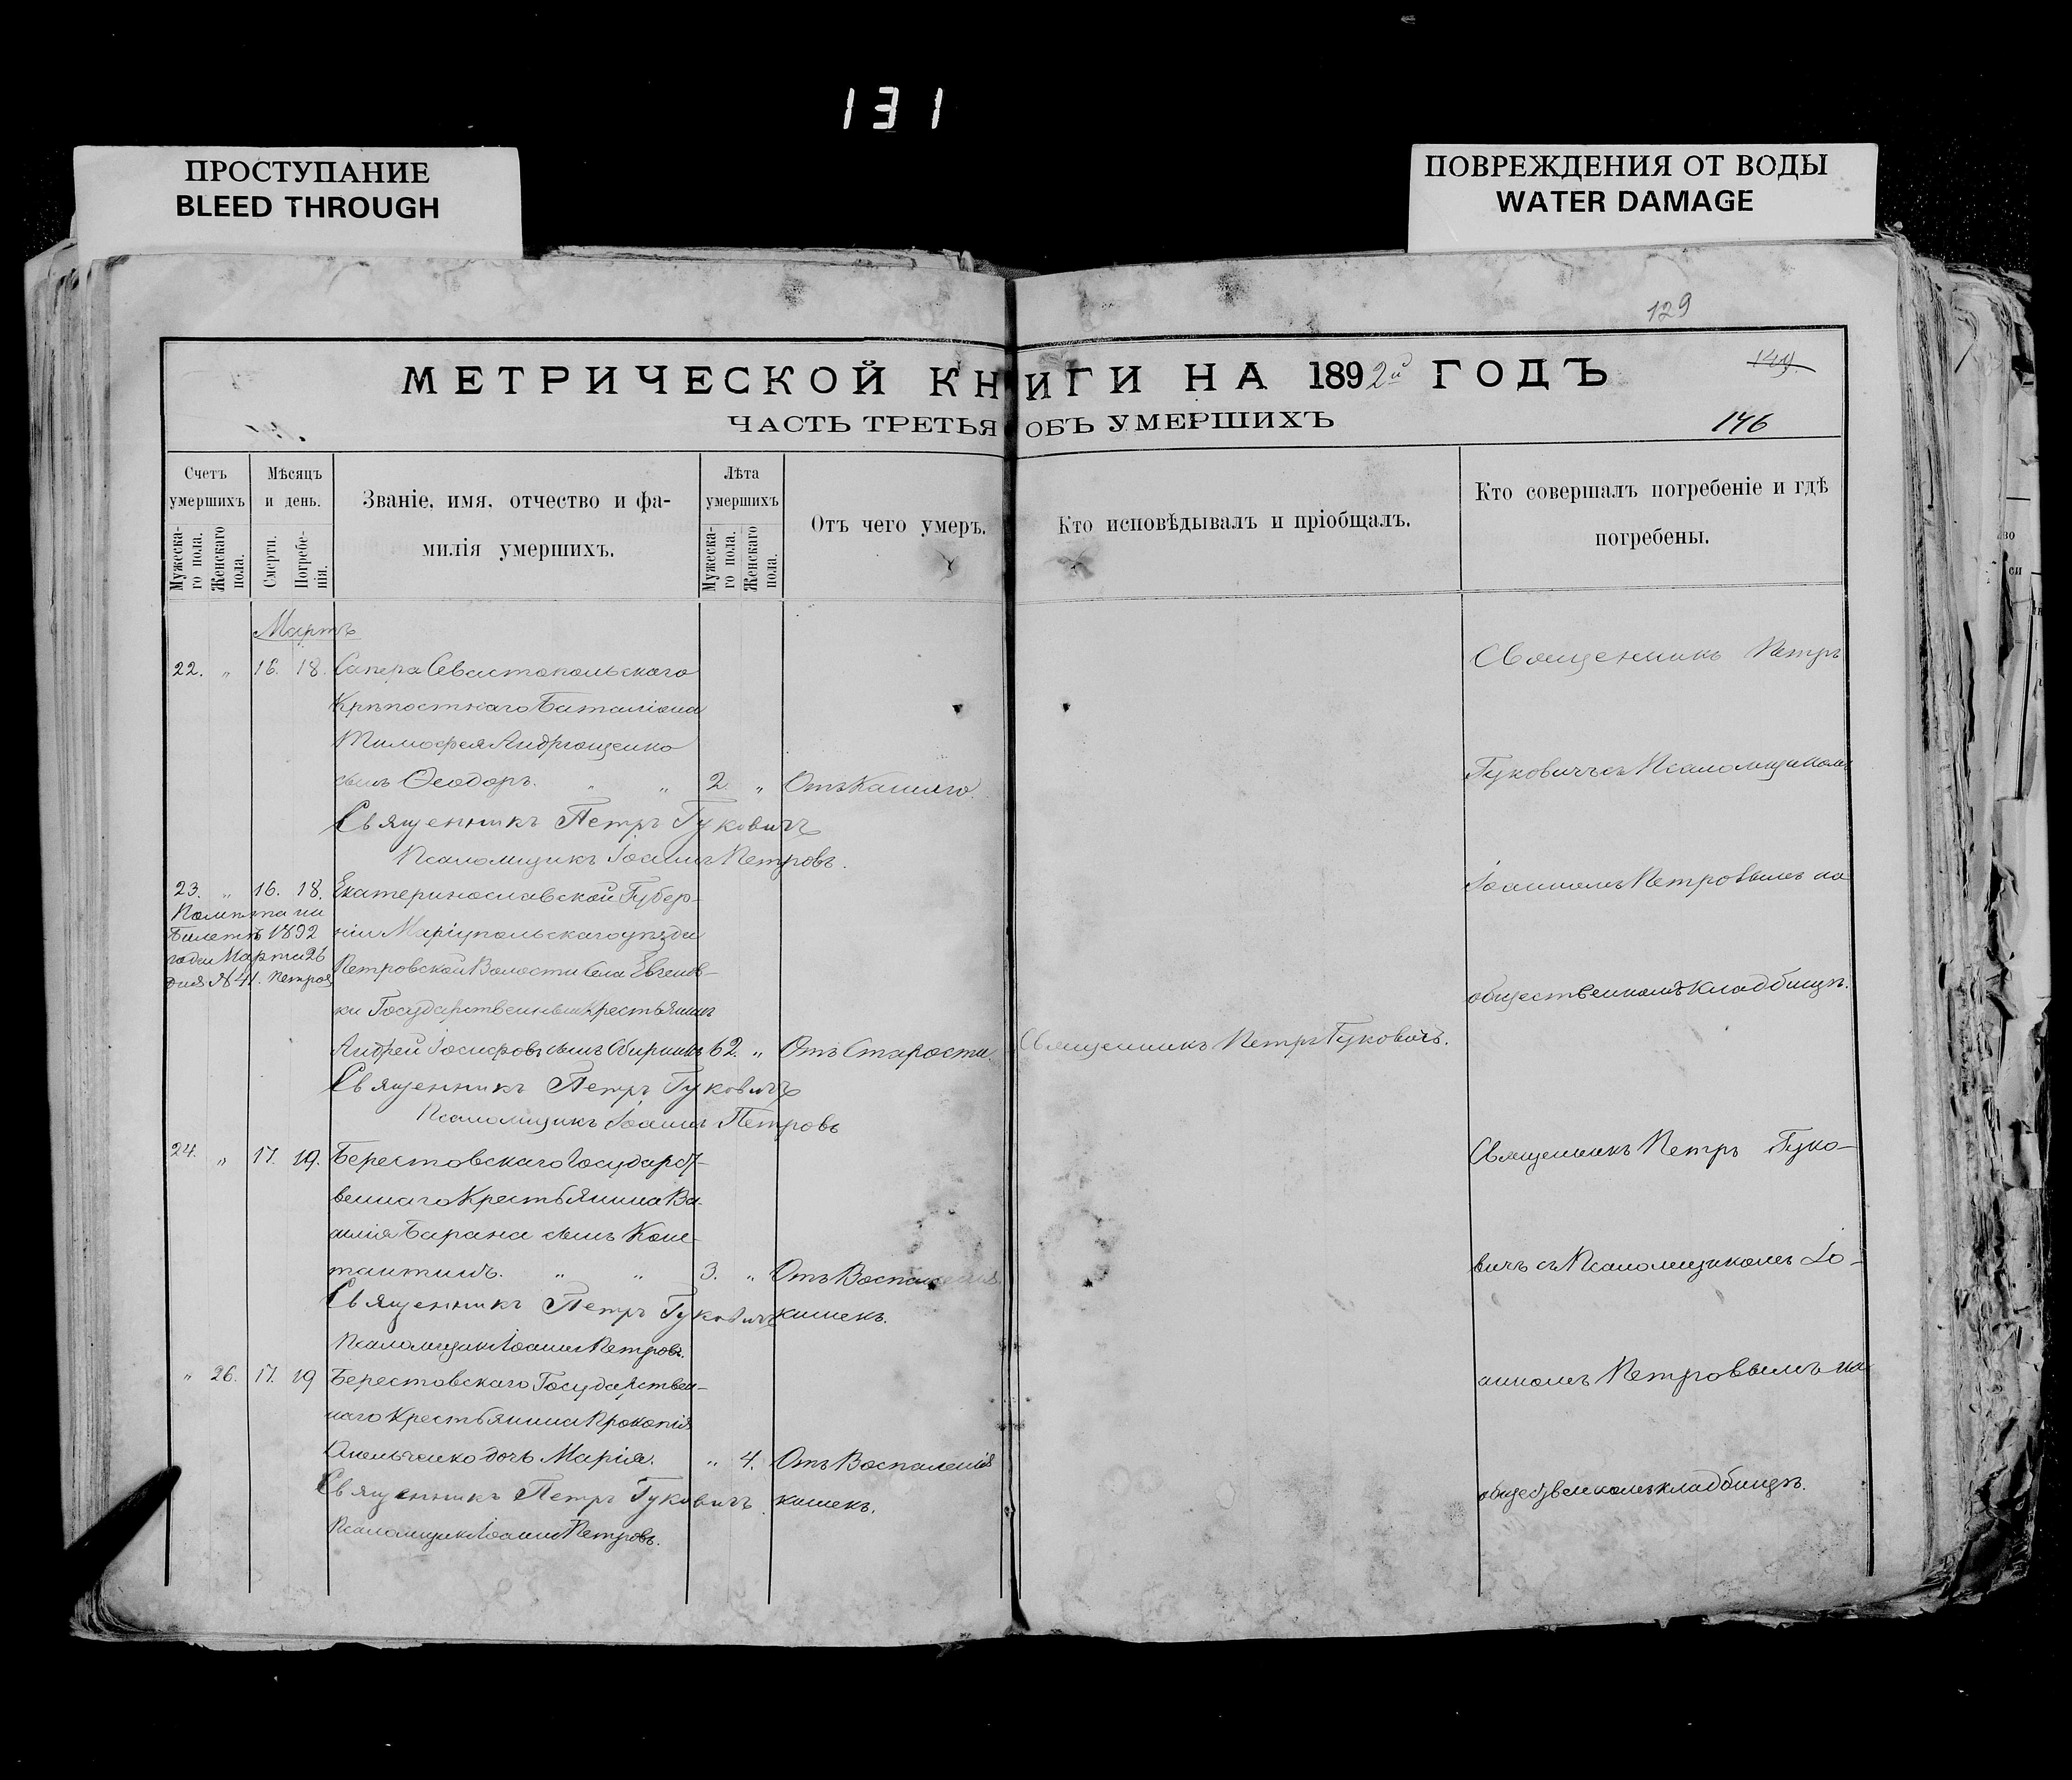 131
ПРОСТУПАНИЕ
BLEED THROUGH
ПОВРЕЖДЕНИЯ ОТ ВОДЫ
WATER DAMAGE
129
МЕТРИЧЕСКОЙ КНИГИ НА 1892й ГОДЪ
149.
ЧАСТЬ ТРЕТЬЯ ОБЪ УМЕРШИХЪ
146
Счетъ умершихъ
Мужеска-го пола.
Женскаго пола.
Мѣсяцъ и день.
Смерти.
Погребе-нія.
Званіе, имя, отчество и фа-
милія умершихъ.
Лѣта умершихъ
Мужеска-го пола.
Женскаго пола.
Отъ чего умеръ.
Кто исповѣдывалъ и пріобщалъ.
Кто совершалъ погребеніе и гдѣ
погребены.
Мартъ
22. „ 16. 18. Сапера Севастопольскаго
Крѣпостнаго Баталіона
Тимофея Андрющенко
сынъ Ѳеодоръ. „ „ 2. „ Отъ Кашлю.
Священникъ Петръ Гуковичъ
Псаломщикъ Іоаннъ Петровъ.
Священникъ Петръ
Гуковичъ съ Псаломщикомъ
Іоанномъ Петровымъ на
общественномъ кладбищѣ.
23. „ 16. 18. Екатеринославской Губер-
ніи Маріупольскаго уѣзда
Петровской Волости Села Евгенов-
ки Государственный Крестьянинъ
Андрей Іосифовъ сынъ 62. „ Отъ Старости. Священникъ Петръ Гуковичъ.
на
Билетѣ 1892
года Марта 26
дня № 41.
Священникъ Петръ Гуковичъ
Псаломщикъ Іоаннъ Петровъ
24. „ 17. 19. Берестовскаго Государст-
веннаго Крестьянина Ва-
силія Барана сынъ Конс-
тантинъ. „ „ 3. „ Отъ Воспаленія
кишекъ.
Священникъ Петръ Гуковичъ
Псаломщикъ Іоаннъ Петровъ.
Священникъ Петръ Гуко-
вичъ съ Псаломщикомъ Іо-
анномъ Петровымъ на
общественномъ кладбищѣ.
„ 26. 17. 19 Берестовскаго Государствен-
наго Крестьянина Прокопія
Омельченко дочь Марія. „ 4. Отъ Воспаленія
кишекъ.
Священникъ Петръ Гуковичъ
Псаломщикъ Іоаннъ Петровъ.